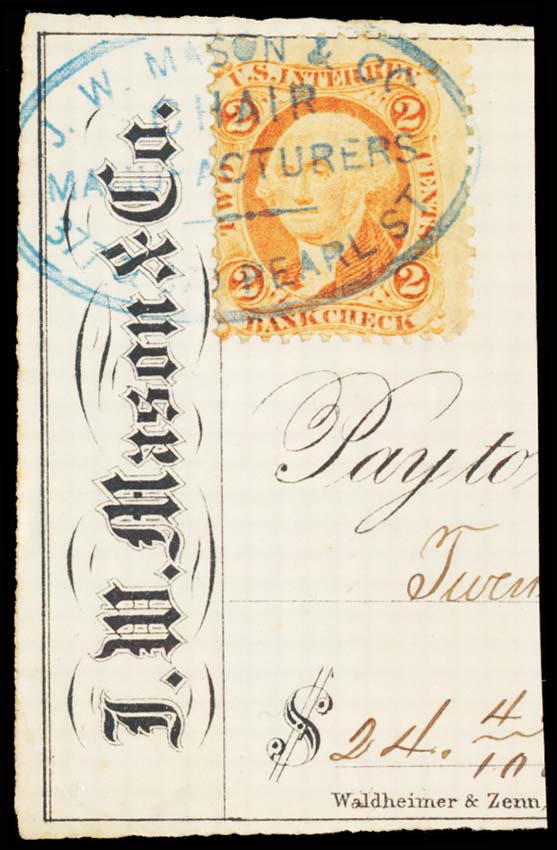 J. W. MASON & CO.
CHAIR
MANUFACTURERS
PEARL ST.
U.S. INTER. REV.
2 2
TWO CENTS
2 2
BANK CHECK
J. W. Mason & Co.
Pay to
Twen
$ 24. 4
10
Waldheimer & Zenn